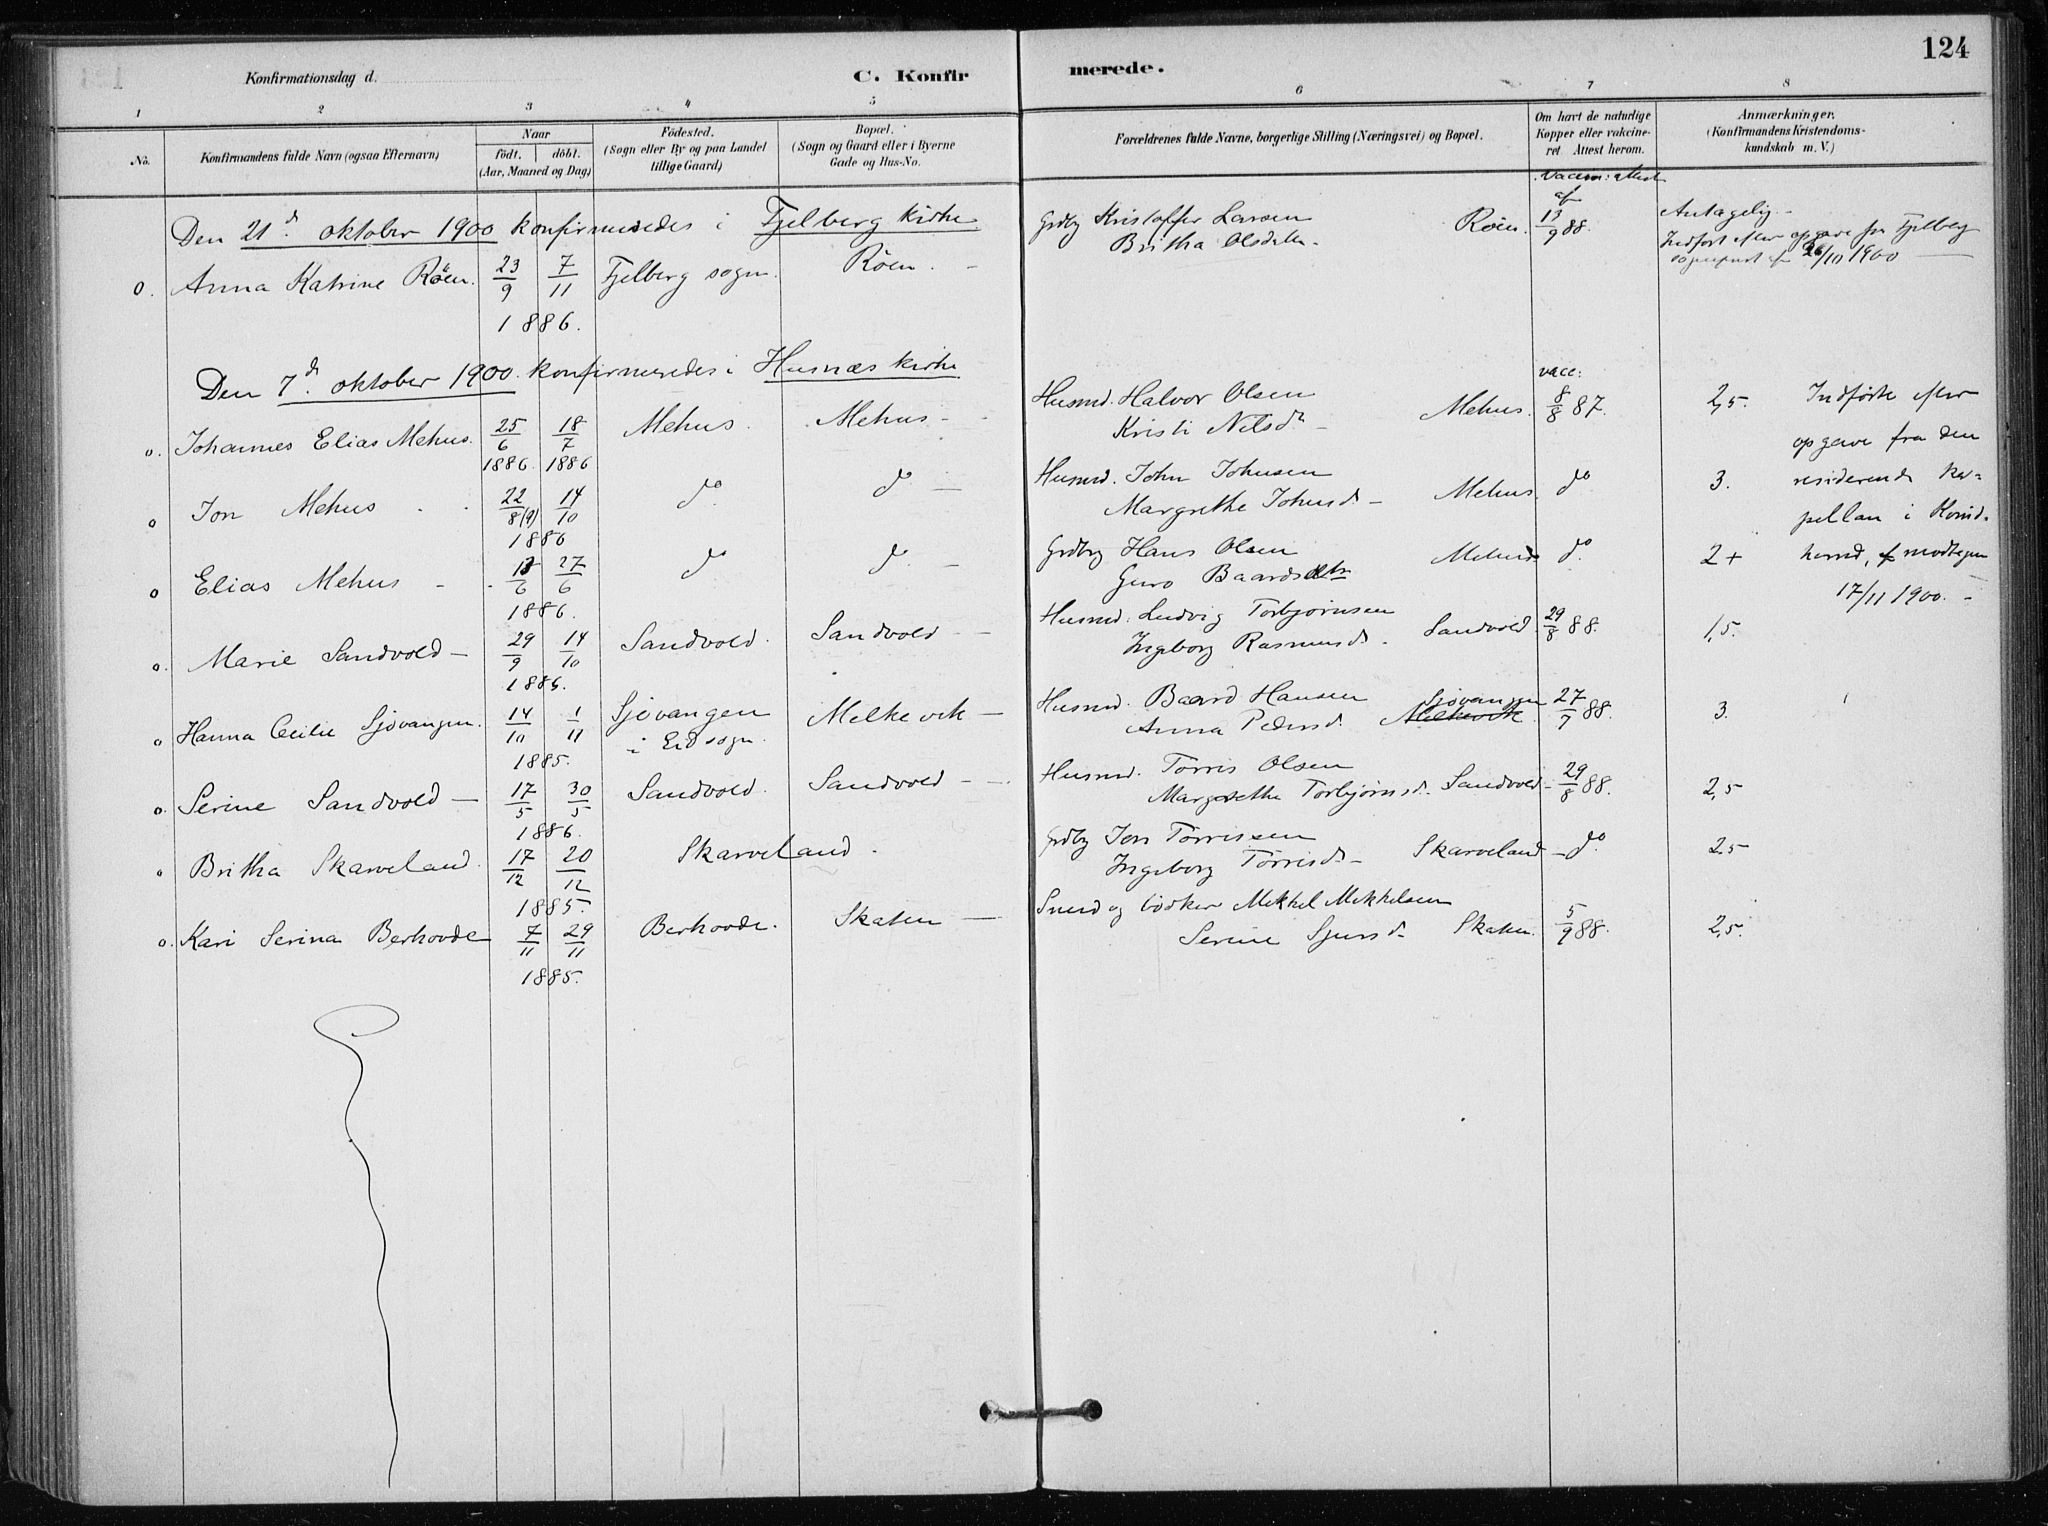 124
Konfirmationsdag d.
C. Konfir
merede.
1 2 3 4 5 6 7 8
No.
Konfirmandens fulde Navn (ogsaa Efternavn)
Naar
födt. döbt.
(Aar, Maaned og Dag)
Födested.
(Sogn eller By og paa Landet
tillige Gaard)
Bopæl.
(Sogn og Gaard eller i Byerne
Gade og Hus-No.
Forældrenes fulde Navne, borgerlige Stilling (Næringsvei) og Bopæl.
Om havt de naturlige
Kopper eller vakcine-
ret. Attest herom.
Anmærkninger,
(Konfirmandens Kristendoms-
kundskab m. V.)
Vaccin: attest
af
Den 21d oktober 1900 konfirmeredes i Fjelberg kirke
0. Anna Katrine Röen. 23/9 7/11 Fjelberg sogn. Röen. -
1886.
Grdbg Kristoffer Larsen Röen. 13/9 88. Antagelig -
Britha Olsdatr - Indført efter opgave fra Fjelberg
26/10 1900
Den 7d. oktober 1900 konfirmeredes i Husnæs kirke
vacc:
o. Johannes Elias Mehus. 25/6 18/7 Mehus. Mehus -
1886. 1886
Husmd. Halvor Olsen Mehus. 8/8 87. 2,5. Indførte efter
Kristi Nilsdr - opgave fra den
o Jon Mehus 22/8(9) 14/10 do do -
1886
Husmd. John Johnsen Mehus. do 3. residerende ka-
Margrethe Johnsd. - pellan i Kvind-
o Elias Mehus - 13/6 27/6 do do -
1886.
Grdbg Hans Olsen Mehus do 2+ herred, modtagen
Guro Baardsdtr 17/11 1900. -
o. Marie Sandvold - 29/9 14/10 Sandvold. Sandvold -
1885.
Husmd. Ludvig Torbjørnsen Sandvold. 29/8 88. 1,5.
Ingeborg Rasmusd. -
o Hanna Cecilie Sjövangen. 14/10 1/11 Sjövangen Melkevik -
i Eid sogn.
1885.
Husmd. Baard Hansen Sjövangen 27/7 88. 3.
Anna Pedersd. Melkevik.
o. Serine Sandvold - 17/5 30/5 Sandvold. Sandvold -
1886.
Husmd. Torris Olsen
Margrethe Torbjørnsd. Sandvold - 29/8 88. 2,5
o Britha Skarveland. 17/12 20/12 Skarveland.
1885.
Grdbg Jon Tørrissen Skarveland - do 2,5
Ingeborg Tørrisd. -
o. Kari Serina Berhovde 7/11 29/11 Berhovde. Skaten -
1885.
Smed og bödker Mikkel Mikkelsen
Serine Sjursd. Skaten. 5/9 88. 2,5.